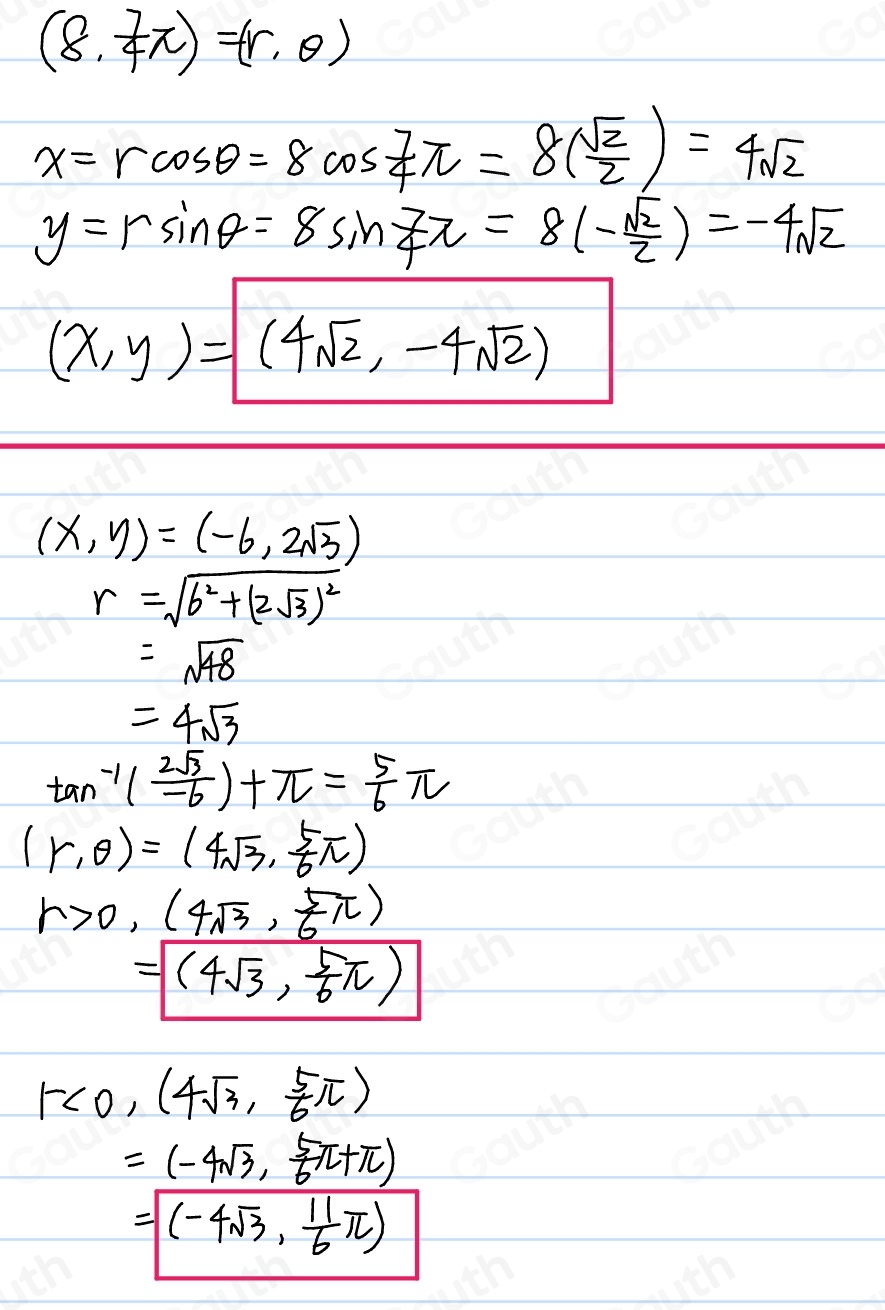 (8, 7/4 π) = (r, θ)
x = r cosθ = 8 cos 7/4 π = 8(√2/2) = 4√2
y = r sinθ = 8 sin 7/4 π = 8(-√2/2) = -4√2
(x, y) = (4√2, -4√2)
(x, y) = (-6, 2√3)
r = √(6² + (2√3)²)
= √48
= 4√3
tan⁻¹(2√3/-6) + π = 5/6 π
(r, θ) = (4√3, 5/6 π)
r>0, (4√3, 5/6 π)
= (4√3, 5/6 π)
r<0, (4√3, 5/6 π)
= (-4√3, 5/6 π+π)
= (-4√3, 11/6 π)